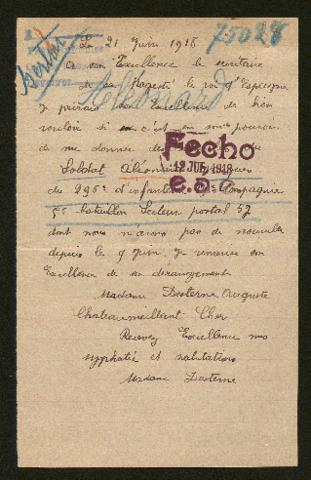 Le 21 Juin 1918
75028
a son Excellence le secrétaire
de sa Majesté le roi d'Espagne
Je prierais son Excellence de bien
vouloir si c'est en son pouvoir
de me donner des
Soldat
du 295e d'infanterie Compagnie
5e bataillon Secteur postal 57
dont nous n'avons pas de nouvelle
depuis le 9 Juin, Je remercie son
Excellence de son dérangement
Madame Desterne Auguste
Chateaumeillant Cher
Recevez Excellence mes
sympathie et salutations
Madame Desterne
Fecho
12 JUL 1918